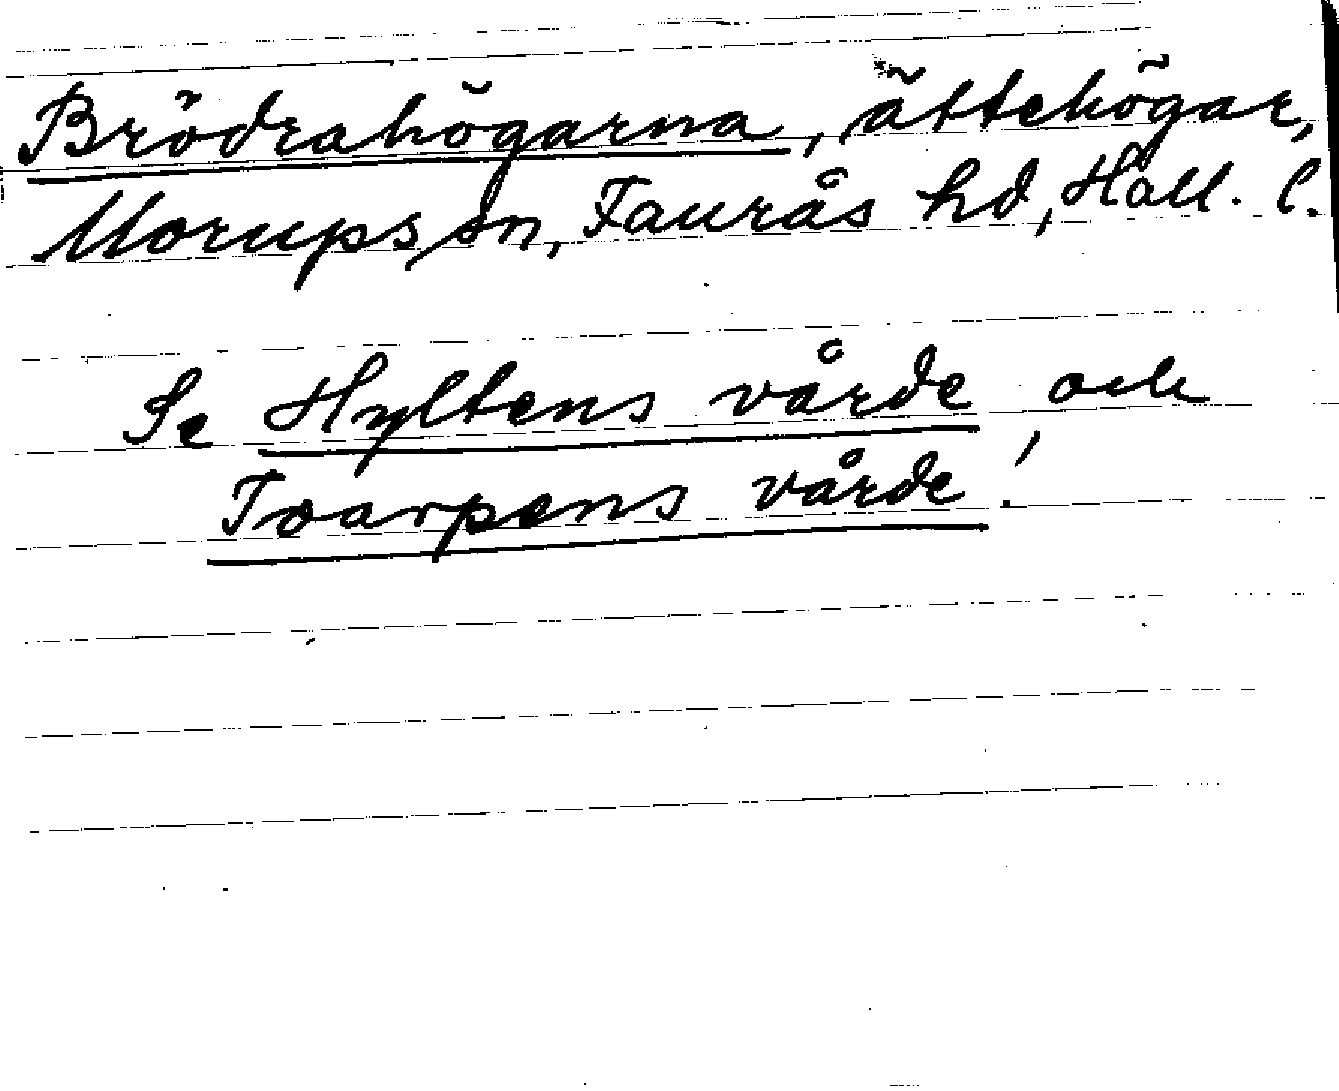 Brödrahögarna, ättehögar,
Morups sn, Faurås hd, Hall. l.
Se Hyltens vårde och
Toarpens vårde!